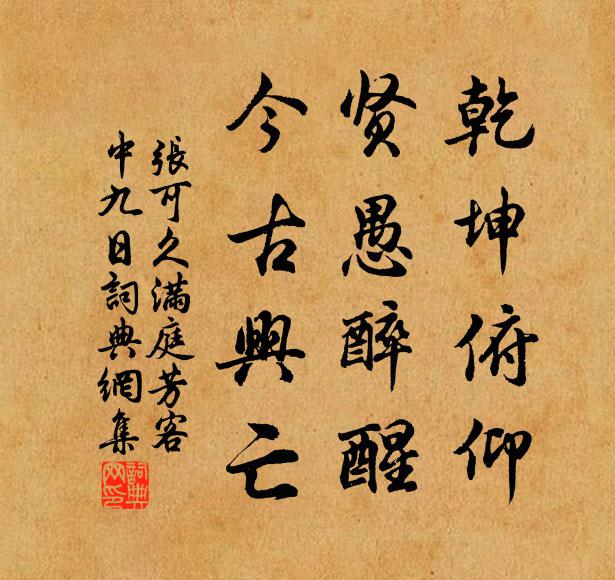 乾坤俯仰
贤愚醉醒
今古興亡
張可久满庭芳客
中九日詞典網集
詞典网印